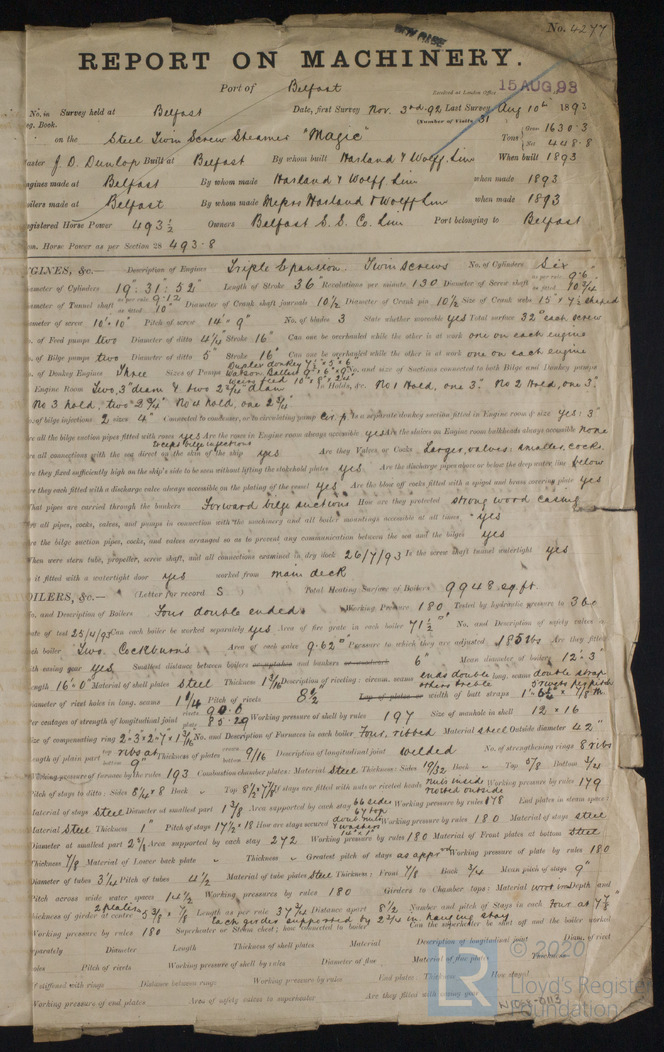 No. 4277
REPORT ON MACHINERY.
Port of Belfast
Received at London Office 15 AUG. 93
No. in Survey held at Belfast Date, first Survey Nov. 3rd 92 Last Survey Aug 10th 1893
eg. Book. (Number of Visits 31
on the Steel Twin Screw Steamer "Magic" Tons { Gross 1630.3
Net 448.8
aster J. O. Dunlop Built at Belfast By whom built Harland & Wolff Lim When built 1893
ngines made at Belfast By whom made Harland & Wolff Lim when made 1893
oilers made at Belfast By whom made Messrs Harland & Wolff Lim when made 1893
egistered Horse Power 493½ Owners Belfast S. S. Co. Lim Port belonging to Belfast
om. Horse Power as per Section 28 493.8
NGINES, &c.— Description of Engines Triple Expansion Twin Screws No. of Cylinders Six
ameter of Cylinders 19".31.52" Length of Stroke 36" Revolutions per minute 130 Diameter of Screw shaft as per rule 9.6 as fitted 10¾
ameter of Tunnel shaft as per rule 9.12 as fitted 10" Diameter of Crank shaft journals 10½ Diameter of Crank pin 10½ Size of Crank webs 15" × 7½ shaped
ameter of screw 10'.10" Pitch of screw 14'.9" No. of blades 3 State whether moveable yes Total surface 32" each screw
o. of Feed pumps two Diameter of ditto 4¼ Stroke 16" Can one be overhauled while the other is at work one on each engine
o. of Bilge pumps two Diameter of ditto 5" Stroke 16" Can one be overhauled while the other is at work one on each engine
o. of Donkey Engines Three Sizes of Pumps Duplex donkey and size of Suctions connected to both Bilge and Donkey pumps
Engine Room Two, 3" diam & two 2¾ diam In Holds, &c. No 1 Hold, one 3". No 2 Hold, one 3"
No 3 hold, two 2¾" No 4 hold, one 2¾"
o. of bilge injections 2 sizes 4" Connected to condenser, or to circulating pump cir. p. Is a separate donkey suction fitted in Engine room & size yes: 3"
re all the bilge suction pipes fitted with roses yes Except bilge injections Are the roses in Engine room always accessible yes Are the sluices on Engine room bulkheads always accessible none
re all connections with the sea direct on the skin of the ship yes Are they Valves or Cocks Larger, valves: smaller, cocks.
re they fixed sufficiently high on the ship's side to be seen without lifting the stokehold plates yes Are the discharge pipes above or below the deep water line below
re they each fitted with a discharge valve always accessible on the plating of the vessel yes Are the blow off cocks fitted with a spigot and brass covering plate yes
hat pipes are carried through the bunkers Forward bilge suctions How are they protected strong wood casing
re all pipes, cocks, valves, and pumps in connection with the machinery and all boiler mountings accessible at all times yes
re the bilge suction pipes, cocks, and valves arranged so as to prevent any communication between the sea and the bilges yes
hen were stern tube, propeller, screw shaft, and all connections examined in dry dock 26/7/93 Is the screw shaft tunnel watertight yes
is it fitted with a watertight door yes worked from main deck
OILERS, &c.— (Letter for record S Total Heating Surface of Boilers 9948 sq. ft.
o. and Description of Boilers Four double ended Working Pressure 180 Tested by hydraulic pressure to 360
ate of test 25/4/93 Can each boiler be worked separately yes Area of fire grate in each boiler 71½ No. and Description of safety valves to
ach boiler Two Cockburn's Area of each valve 9.62" Pressure to which they are adjusted 185 lbs Are they fitted
ith easing gear yes Smallest distance between boilers or uptakes and bunkers or woodwork 6" Mean diameter of boilers 12'.3"
ength 16'.0" Material of shell plates Steel Thickness 1 3/16 Description of riveting: circum. seams ends double others treble long. seams double strap 5 rivets per pitch
iameter of rivet holes in long. seams 1¼ Pitch of rivets 8½ Lap of plates or width of butt straps
er centages of strength of longitudinal joint rivets 90.6 plate 85.29 Working pressure of shell by rules 197 Size of manhole in shell 12 × 16
ize of compensating ring No. and Description of Furnaces in each boiler Four, ribbed Material steel Outside diameter 42"
ength of plain part top bottom 9" Thickness of plates crown bottom 9/16 Description of longitudinal joint welded No. of strengthening rings 8 ribs
Working pressure of furnace by the rules 193 Combustion chamber plates: Material Steel Thickness: Sides 19/32 Back " Top 5/8 Bottom 3/4
itch of stays to ditto: Sides 8¼ × 8 Back " Top 8½ × 7⅞ If stays are fitted with nuts or riveted heads nuts inside riveted outside Working pressure by rules 179
aterial of stays Steel Diameter at smallest part 1⅜ Area supported by each stay 66 sides 67 top Working pressure by rules 178 End plates in steam space:
Material Steel Thickness 1" Pitch of stays 17½ × 18 How are stays secured doub. nuts & washers Working pressure by rules 180 Material of stays steel
iameter at smallest part 2⅝ Area supported by each stay 272 Working pressure by rules 180 Material of Front plates at bottom Steel
Thickness 7/8 Material of Lower back plate " Thickness " Greatest pitch of stays as appr'd Working pressure of plate by rules 180
iameter of tubes 3¼ Pitch of tubes 4½ Material of tube plates Steel Thickness: Front 7/8 Back 3/4 Mean pitch of stays 9"
itch across wide water spaces 14½ Working pressures by rules 180 Girders to Chamber tops: Material Depth and
hickness of girder at centre 2 plates 5⅜ × 7/8 Length as per rule 37¾ Distance apart 8½ Number and pitch of Stays in each Four at 7⅞
Working pressure by rules 180 each girder supported by 2¾ in hanging stay
Superheater or Steam chest; how connected to boiler Can the superheater be shut off and the boiler worked
eparately Diameter Length Thickness of shell plates Material Description of longitudinal joint Diam. of rivet
oles Pitch of rivets Working pressure of shell by rules Diameter of flue Material of flue plates Thickness
f stiffened with rings Distance between rings Working pressure by rules End plates: Thickness How stayed
Working pressure of end plates Area of safety valves to superheater Are they fitted with easing gear
© 2020
LR Lloyd's Register
Foundation